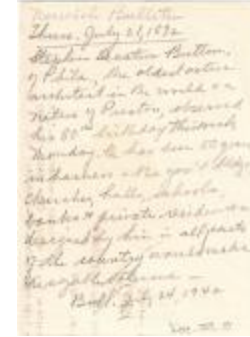 Norwich Bulletin
Thurs. July 21, 1892
Stephen Decatur Button,
of Phila, the oldest active
architect in the world & a
native of Preston, observed
his 80th birthday
Monday. He has been 50 years
in business &
Churches, halls, schools,
banks & private residences
designed by him in all parts
of the country would make
volume —
Bull. July 24, 1942